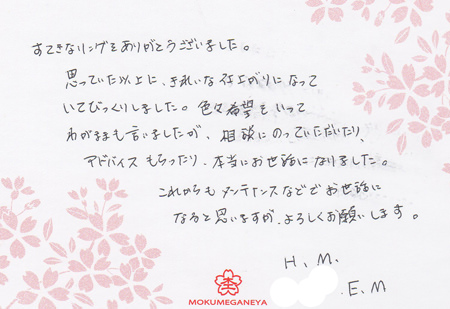 すてきなリングをありがとうございました。
思っていた以上に、きれいな仕上がりになって
いてびっくりしました。色々希望をいって
わがままも言いましたが、相談にのっていただいたり、
アドバイスもらったり、本当にお世話になりました。
これからもメンテナンスなどでお世話に
なると思いますが、よろしくお願いします。
H.M.
.E.M
MOKUMEGANEYA